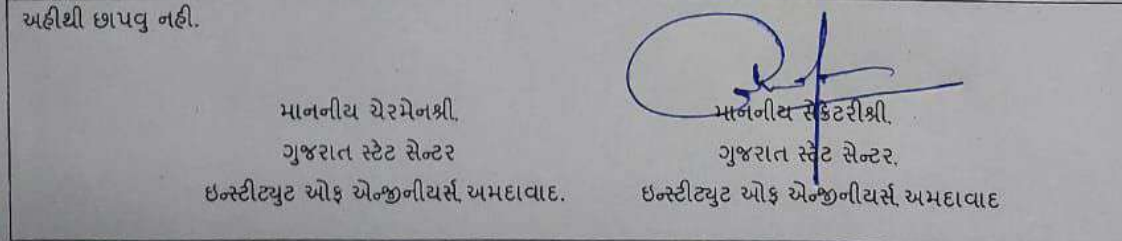 અહીથી છાપવુ નહી.
માનનીય ચેરમેનશ્રી,
ગુજરાત સ્ટેટ સેન્ટર
ઇન્સ્ટીટ્યુટ ઓફ એન્જીનીયર્સ, અમદાવાદ.
માનનીય સેક્રેટરીશ્રી,
ગુજરાત સ્ટેટ સેન્ટર,
ઇન્સ્ટીટ્યુટ ઓફ એન્જીનીયર્સ, અમદાવાદ